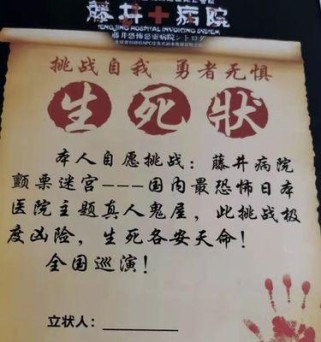 藤井+病院
挑战自我 勇者无惧
生死狀
本人自愿挑战：藤井病院
颤栗迷宫---国内最恐怖日本
医院主题真人鬼屋，此挑战极
度凶险，生死各安天命！
全国巡演！
立状人：